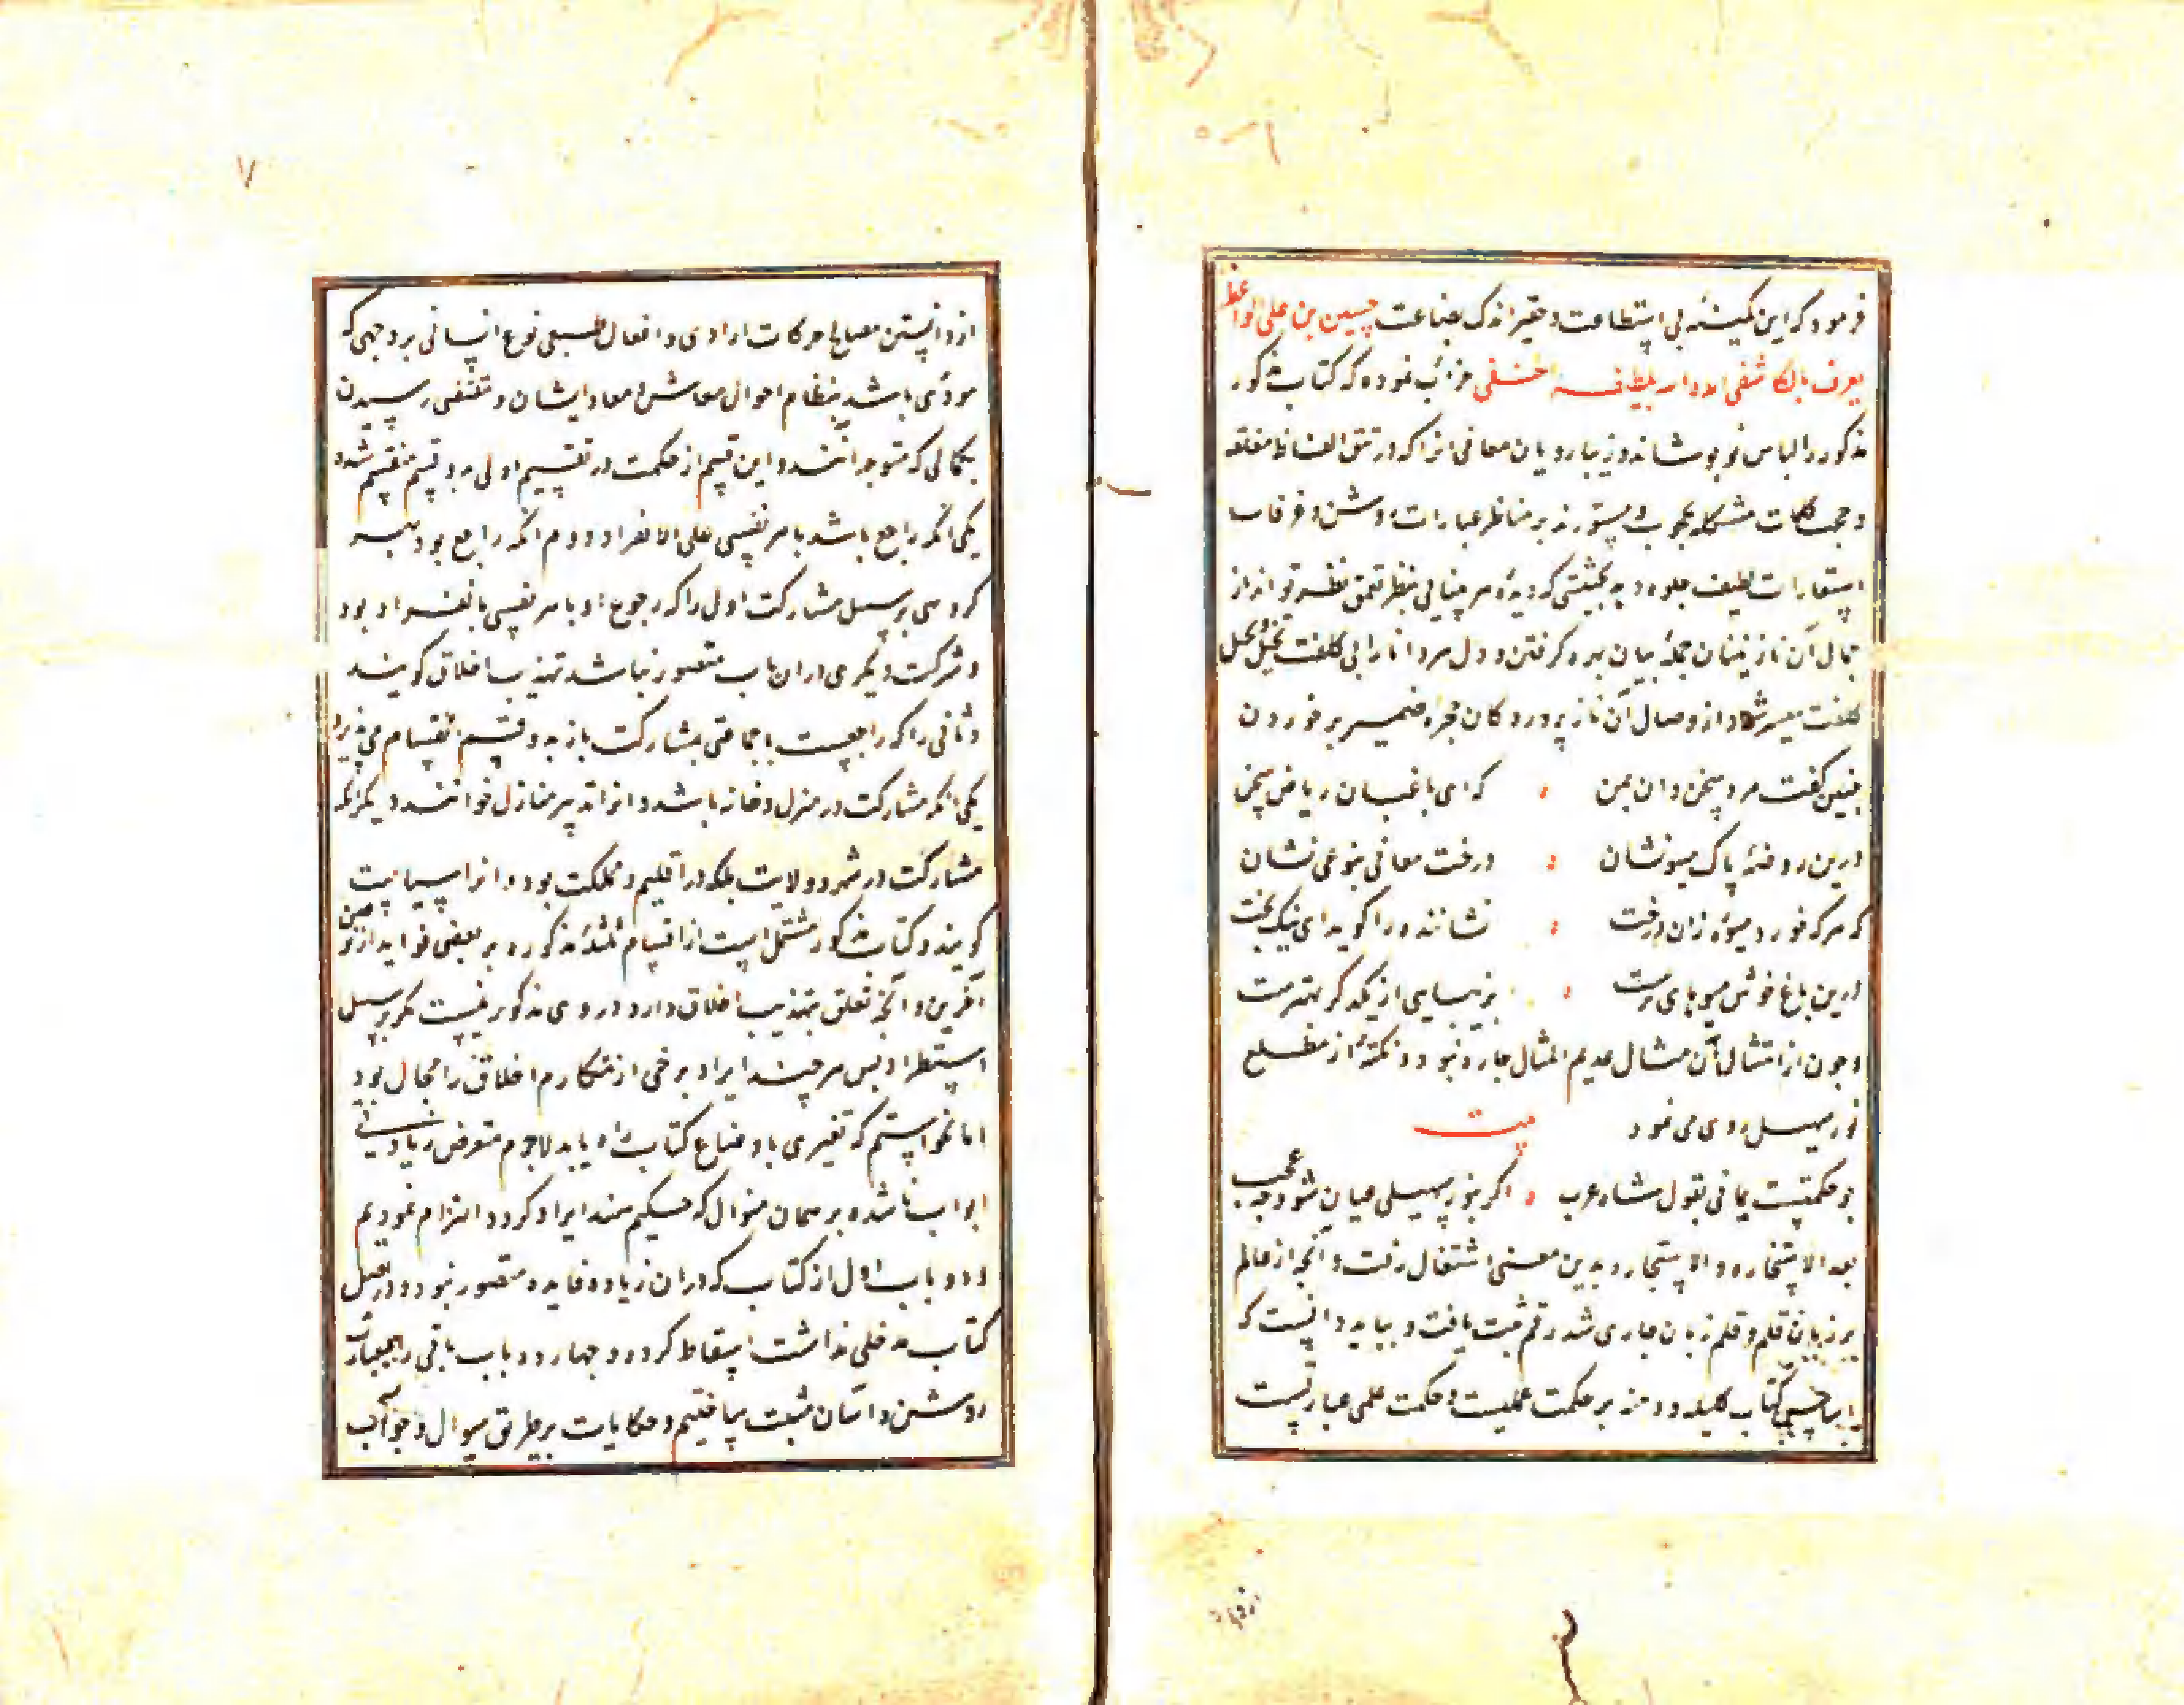 فرمود که این کمینهٔ بی استطاعت و حقیر اندک بضاعت حسین بن علی الواعظ
یعرف بالکاشفی ایده الله بلطفه الخفی جرأت نموده که کتاب مذکور
مذکور را لباس نو پوشاند و زیبا رویان معانی انرا که در تتق الفاظ مغلقه
و حجب کلمات مشکله محجوب و مستورند بر مناظر عبارات روشن و غرفات
استعارات لطیف جلوه دهد بحیثیتی که دیدهٔ هر بینایی بی نظر تعمق نظر تواند از
جمال آن نازنینان حجلهٔ بیان بهره گرفتن و دل هر دانا را بی کلفت تخیل تحمل
کلفت میسر شود از وصال آن ناز پروردگان حجره ضمیر برخوردن
چنین گفت مرد سخن دان بمن ؛ که ای باغبان ریاض سخن
درین روضهٔ پاک مینو نشان ؛ درخت معانی بنوعی نشان
که هر که خورد میوهٔ زان درخت ؛ نشاننده را گوید ای نیک بخت
درین باغ خوش میوهای ترست ؛ بزیبایی از یکدگر بهترست
و چون از امتثال آن مثال عدیم المثال چاره نبود و نکتهٔ از مطلع
نور سهیل روی می نمود بیت
چو حکمتیست یمانی بقول شاه عرب ؛ اگر بنور سهیلی عیان شود چه عجب
بعد الاستخاره و الاستجاره بدین معنی اشتغال رفت و آنچه از عالم
بر زبان قلم و قلم زبان جاری شد رقم ثبت یافت و بباید دانست که
اساس کتاب کلیله و دمنه بر حکمت عملیست و حکمت عملی عبارتست
از دانستن
۷
از دانستن مصالح حرکات ارادی و افعال طبیعی نوع انسانی بر وجهی که
مودّی باشد بنظام احوال معاش و معاد ایشان و مقتضی رسیدن
بکمالی که متوجه آنند و این قسم از حکمت در تقسیم اولی بدو قسم منقسم شود
یکی انکه راجع باشد با هر نفسی علی الانفراد و دوم انکه راجع بود به
گروهی بر سبیل مشارکت اول را که رجوع او با هر نفسی بانفراد بود
و شرکت دیگری در ان باب متصور نباشد تهذیب اخلاق گویند
و ثانی را که راجعست با جماعتی بمشارکت باز بدو قسم انقسام می پذیرد
یکی انکه مشارکت در منزل و خانه باشد و انرا تدبیر منازل خوانند دیگر انکه
مشارکت در شهر و ولایت بلکه در اقلیم و مملکت بود و انرا سیاست
گویند و کتاب مذکور مشتمل است از اقسام ثلثهٔ مذکوره بر بعضی فواید از نوعین
آخرین و آنچه تعلق بتهذیب اخلاق دارد در وی مذکور نیست مگر بر سبیل
استطراد پس هر چند ایراد برخی از مکارم اخلاق را مجال بود
اما نخواستم که تغییری باوضاع کتاب راه یابد لاجرم متعرض زیادتی
ابواب ناشده بر همان منوال که حکیم هند ایراد کرده التزام نمودیم
و دو باب اول از کتاب که در ان زیاده فایده متصور نبود و در اصل
کتاب مدخلی نداشت اسقاط کرده و چهارده باب باقی را بعبارت
روشن و آسان مثبت ساختیم و حکایات بر طریق سوال و جواب